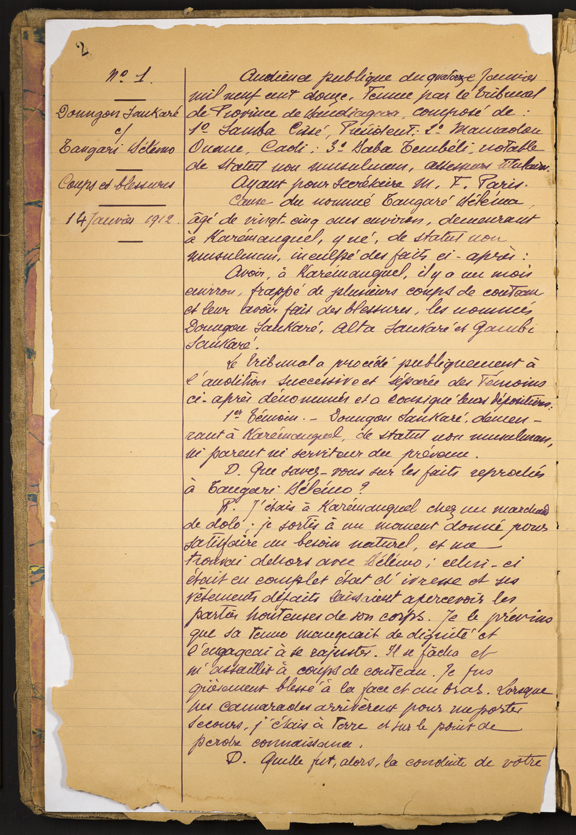 2
N° 1.
Doungon Sankaré
c/
Tangari Sélémo
Coups et blessures
14 Janvier 1912.
Audience publique du quatorze Janvier
mil neuf cent douze, Tenue par le Tribunal
de Province de Bandiagara, composé de :
1° Samba Cissé, Président : 2° Mamadou
Oumar, Cadi : 3° Daba Tembéli, notable
de statut non musulman, assesseurs titulaires.
Ayant pour Secrétaire M. F. Paris.
Cause du nommé Tangaré Sélémo,
âgé de vingt cinq ans environ, demeurant
à Karémanguel, y né, de statut non
musulman, inculpé des faits ci-après :
Avoir, à Karémanguel, il y a un mois
environ, frappé de plusieurs coups de couteau
et leur avoir fait des blessures, les nommés
Doungon Sankaré, Alta Sankaré et Gambi
Sankaré.
Le Tribunal a procédé publiquement à
l'audition successive et séparée des Témoins
ci-après dénommés et a consigné leurs dépositions.
1er Témoin. - Doungon Sankaré, demeu-
rant à Karémanguel, de statut non musulman,
ni parent ni serviteur du prévenu.
D. Que savez-vous sur les faits reprochés
à Tangari Sélémo ?
R. J'étais à Karémanguel chez un marchand
de dolo : je sortis à un moment donné pour
satisfaire un besoin naturel, et me
trouvai dehors avec Sélémo ; celui-ci
était en complet état d'ivresse et ses
vêtements défaits laissaient apercevoir les
parties honteuses de son corps. Je le prévins
que sa tenue manquait de dignité et
l'engageai à se rajuster. Il se fâcha et
m'assaillit à coups de couteau. Je fus
grièvement blessé à la face et au bras. Lorsque
les camarades arrivèrent pour me porter
secours, j'étais à terre et sur le point de
perdre connaissance.
D. Quelle fut, alors, la conduite de votre